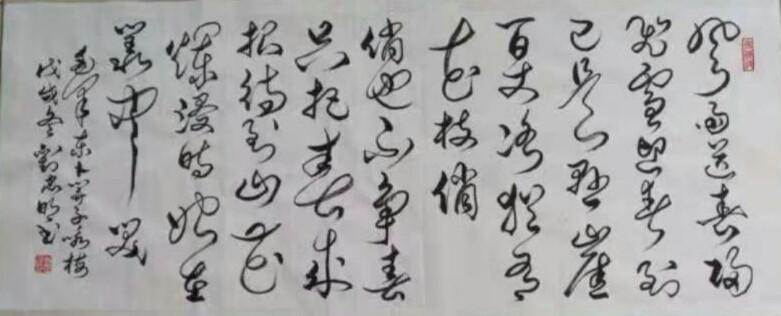 风雨送春归
飞雪迎春到
已是悬崖
百丈冰犹有
花枝俏
俏也不争春
只把春来
报待到山花
烂漫时她在
丛中笑
毛泽东卜算子咏梅
戊戌冬刘书